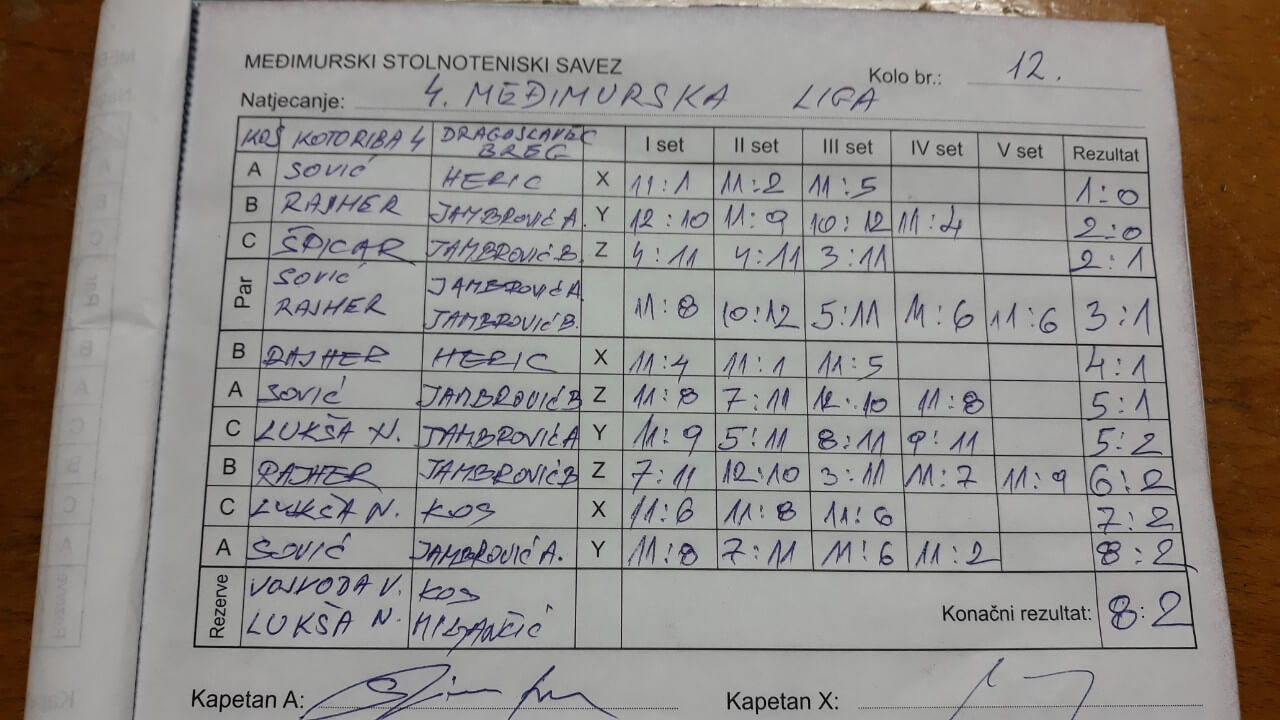 MEĐIMURSKI STOLNOTENISKI SAVEZ
Kolo br.: 12.
Natjecanje: 4. MEĐIMURSKA LIGA
KOŠ KOTORIBA 4 DRAGOSLAVEC BREG I set II set III set IV set V set Rezultat
A SOVIĆ HERIC X 11:1 11:2 11:5 1:0
B RAJHER JAMBROVIĆ A. Y 12:10 11:9 10:12 11:4 2:0
C ŠPICAR JAMBROVIĆ B. Z 4:11 4:11 3:11 2:1
Par SOVIĆ RAJHER JAMBROVIĆ A. JAMBROVIĆ B. 11:8 10:12 5:11 11:6 11:6 3:1
B RAJHER HERIC X 11:4 11:1 11:5 4:1
A SOVIĆ JAMBROVIĆ B Z 11:8 7:11 12:10 11:8 5:1
C LUKŠA N. JAMBROVIĆ A Y 11:9 5:11 8:11 9:11 5:2
B RAJHER JAMBROVIĆ B Z 7:11 12:10 3:11 11:7 11:9 6:2
C LUKŠA N. KOS X 11:6 11:8 11:6 7:2
A SOVIĆ JAMBROVIĆ A. Y 11:8 7:11 11:6 11:2 8:2
Rezerve VOJVODA V. KOS
LUKŠA N. Konačni rezultat: 8:2
Kapetan A: Kapetan X: